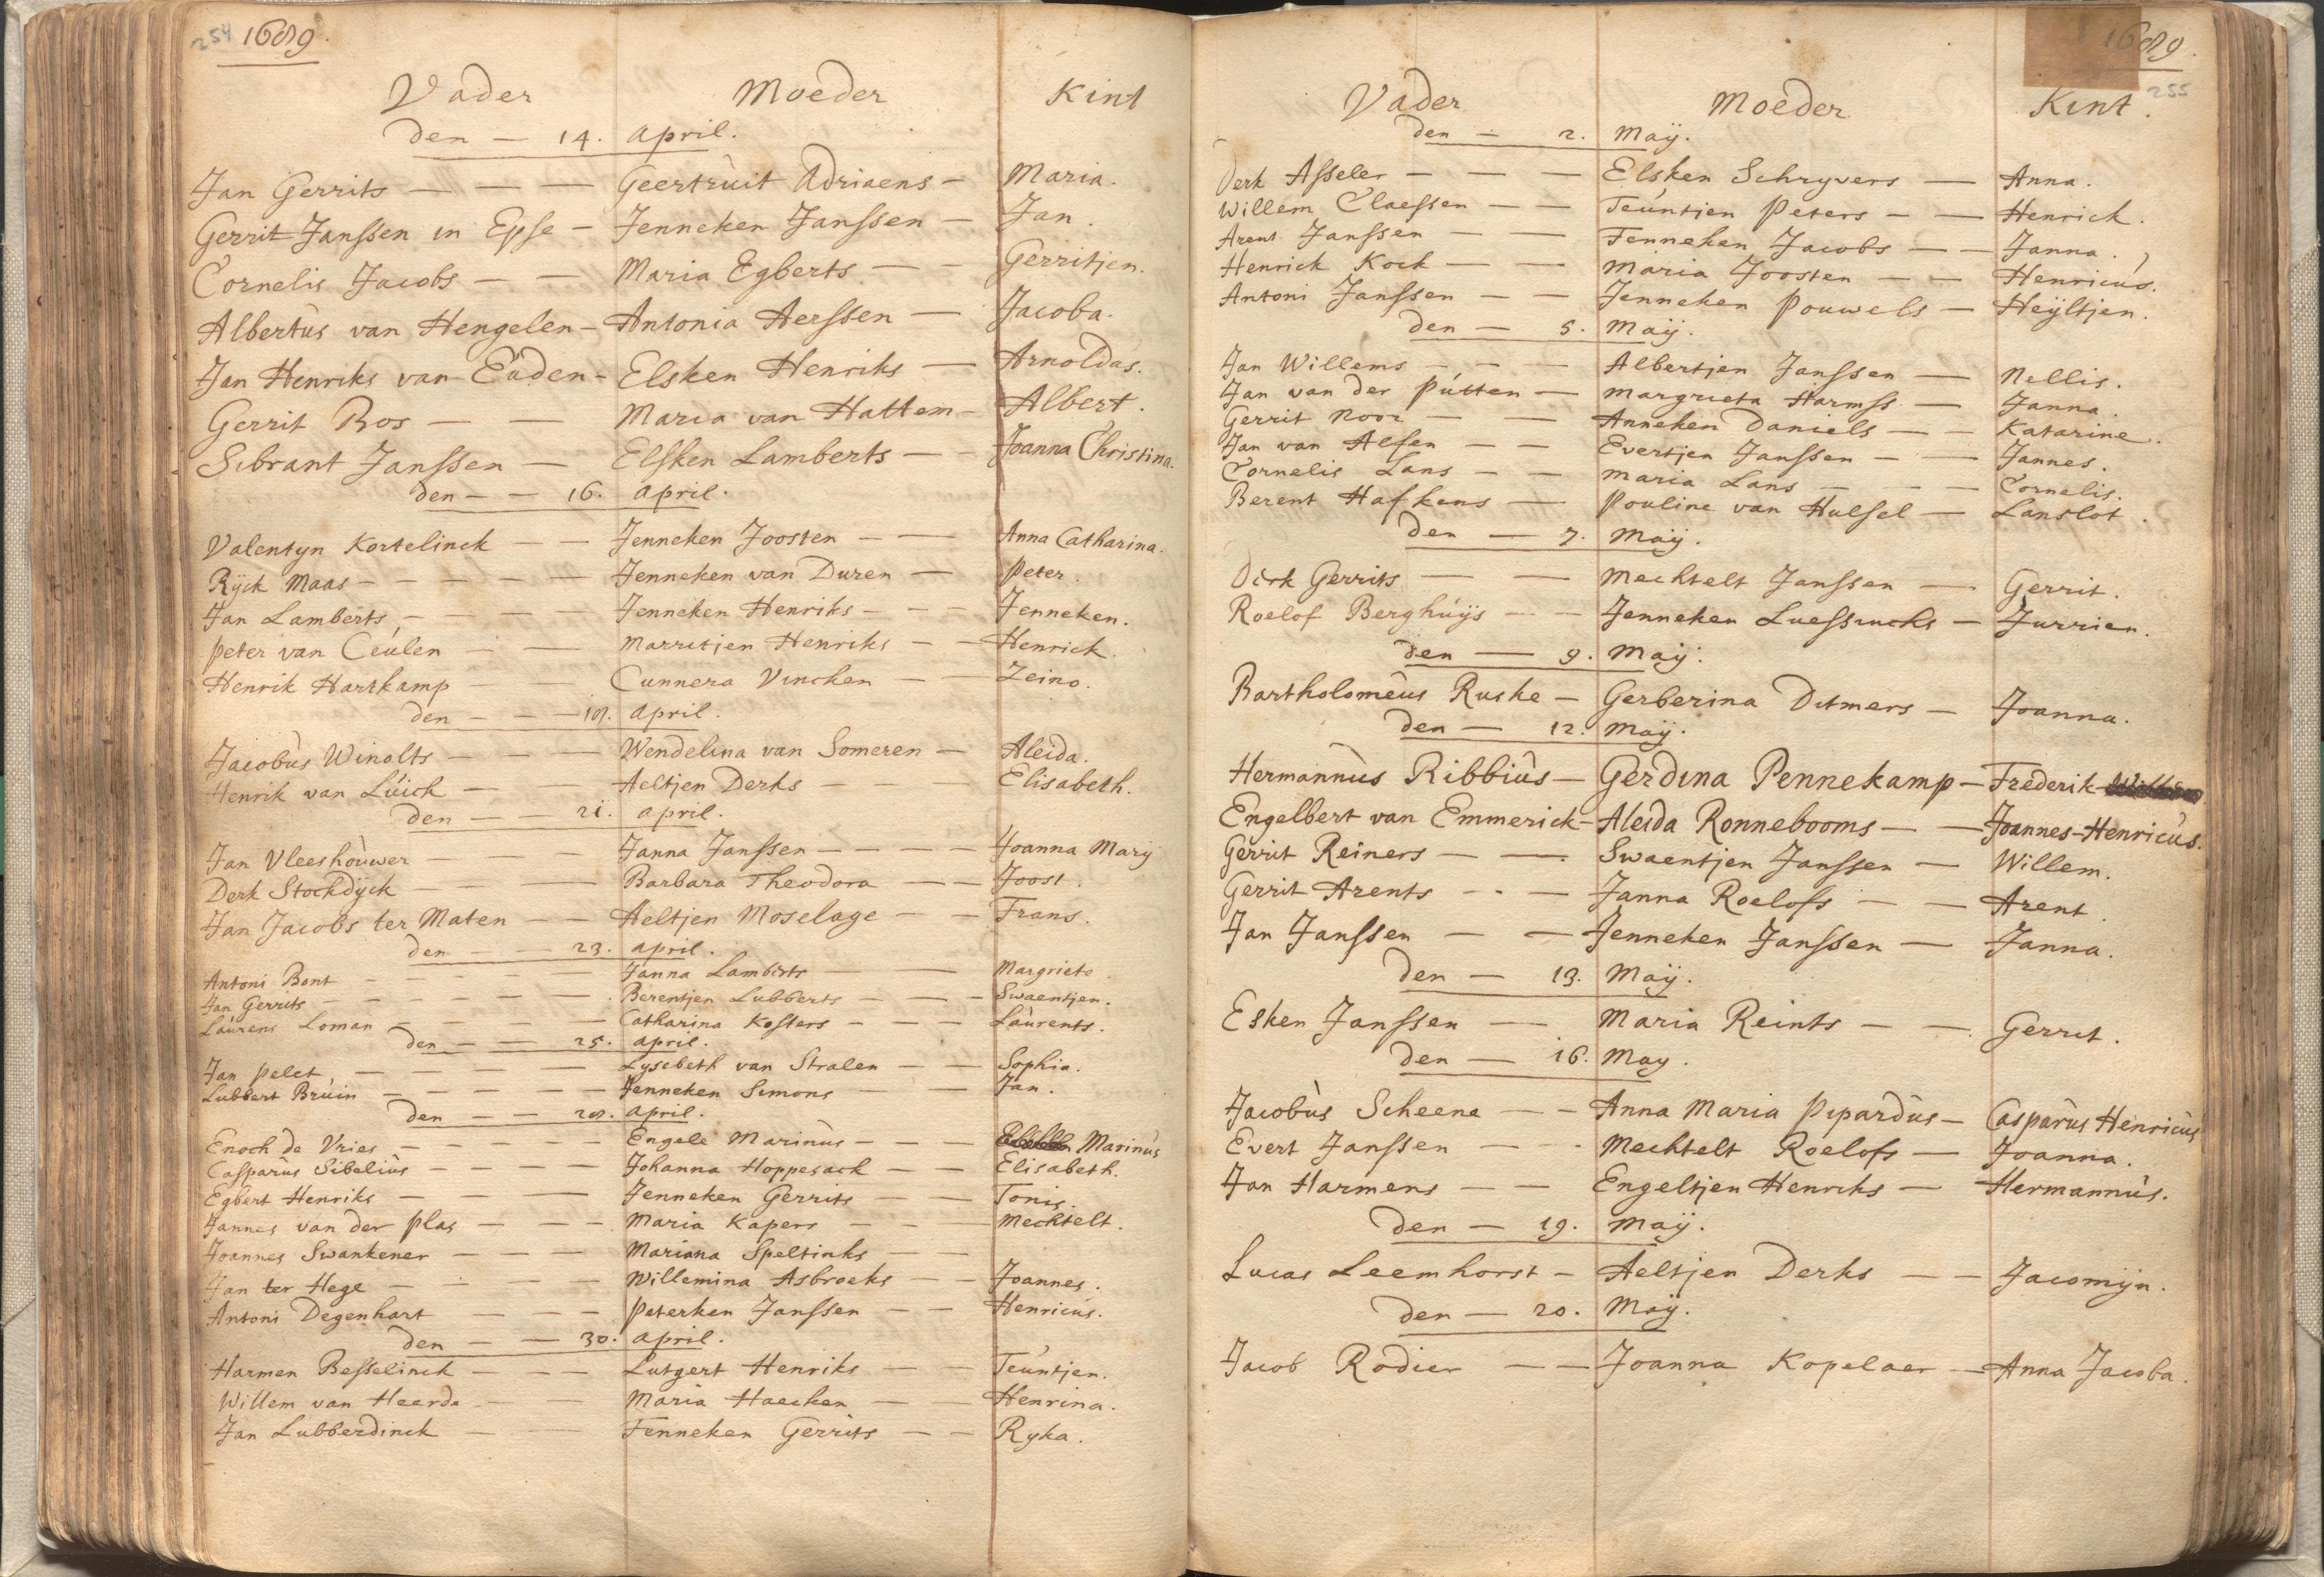 254 1689.
Vader Moeder Kint
den — 14. April.
Jan Gerrits — — — Geertruit Adriaens — Maria.
Gerrit Janssen in Epse — Jenneken Janssen — Jan.
Cornelis Jacobs — — Maria Egberts — — Gerritjen.
Albertùs van Hengelen — Antonia Aerssen — Jacoba.
Jan Henriks van Eùden — Elsken Henriks — Arnoldus.
Gerrit Bos — — Maria van Hattem — Albert.
Sibrant Janssen — Elsken Lamberts — — Joanna Christina.
den — — 16. April.
Valentyn Kortelinck — — Jenneken Joosten — — Anna Catharina.
Rÿck Maas — — — — — Jenneken van Duren — Peter.
Jan Lamberts — — — — Jenneken Henriks — — — Jenneken.
Peter van Ceúlen — — Marritjen Henriks — — Henrick.
Henrik Hartkamp — — Cunnera Vincken — — Zeino.
den — — — 18. April.
Jacobùs Winolts — — Wendelina van Someren — Aleida.
Henrik van Lúick — — Aeltjen Derks — — — Elisabeth.
den — — 21. April.
Jan Vleeshòuwer — — Janna Janssen — — — — Joanna Marÿ
Derk Stockdÿck — — — Barbara Theodora — — Joost.
Jan Jacobs ter Maten — — Aeltjen Moselage — — Frans.
den — — 23. April.
Antoni Bont — — — — Janna Lamberts — — Margriete.
Jan Gerrits — — — — — — Berentjen Lubberts — — — Swaentjen.
Laúrens Loman — — — — Catharina Kosters — — — Laùrents.
den — — — 25. April.
Jan Pelet — — — — — Lysebeth van Stralen — — Sophia.
Lubbert Brúin — — — — — Jenneken Simons — — Jan.
den — — 28. April.
Enoch de Vries — — — — — Engele Marinùs — — — Marinùs
Casparùs Sibeliùs — — — — Johanna Hoppesack — — Elisabeth.
Egbert Henriks — — — — Jenneken Gerrits — — Tonis.
Jannes van der Plas — — — Maria Kapers — — — Mechtelt.
Joannes Swankener — — — Mariana Speltinks — —
Jan ter Hege — — — — Willemina Asbroeks — — Joannes.
Antoni Degenhart — — — Peterken Janssen — — Henricùs.
den — — 30. April.
Harmen Besselinck — — — Lutgert Henriks — — Teúntjen.
Willem van Heerde — — Maria Haecken — — Henrina.
Jan Lubberdinck — — Fenneken Gerrits — — Ryka.
1689.
255
Vader Moeder Kint.
den — 2. Maÿ.
Derk Asseler — — — Elsken Schryvers — Anna.
Willem Claessen — — Teúntjen Peters — — Henrick.
Arent Janssen — — Fenneken Jacobs — — Janna.
Henrick Kock — — Maria Joosten — — Henricús.
Antoni Janssen — — Jenneken Pouwels — Heÿltjen.
den — 5. Maÿ.
Jan Willems — — — Albertjen Janssen — Nellis.
Jan van der Pútten — Margrieta Harmss — Janna.
Gerrit Noor — — Anneken Daniels — — Katarine.
Jan van Alfen — — Evertjen Janssen — — Jannes.
Cornelis Lans — — Maria Lans — — — Cornelis.
Berent Hafkens — Pouline van Hulsel — Lanslot.
den — 7. Maÿ.
Dirk Gerrits — — Mechtelt Janssen — Gerrit.
Roelof Berghúÿs — — Jenneken Luessincks — Jurrien.
den — 9. Maÿ.
Bartholomeùs Ruske — Gerberina Ditmers — Joanna.
den — 12. Maÿ.
Hermannùs Ribbiùs — Gerdina Pennekamp — Frederik
Engelbert van Emmerick — Aleida Ronnebooms — — Joannes-Henricùs.
Gerrit Reiners — — Swaentjen Janssen — Willem.
Gerrit Arents — — Janna Roelofs — — Arent.
Jan Janssen — — Jenneken Janssen — Janna.
den — 13. Maÿ.
Esken Janssen — Maria Reints — — Gerrit.
den — 16. May.
Jacobùs Scheene — — Anna Maria Pipardùs — Casparùs Henricùs
Evert Janssen — — Mechtelt Roelofs — Joanna.
Jan Harmens — — Engeltjen Henriks — Hermannùs.
den — 19. Maÿ.
Lucas Leemhorst — Aeltjen Derks — — Jacomÿn.
den — 20. Maÿ.
Jacob Rodier — — Joanna Kopelaer — Anna Jacoba.